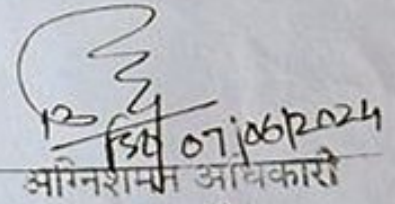 07/06/2024
अग्निशमन अधिकारी